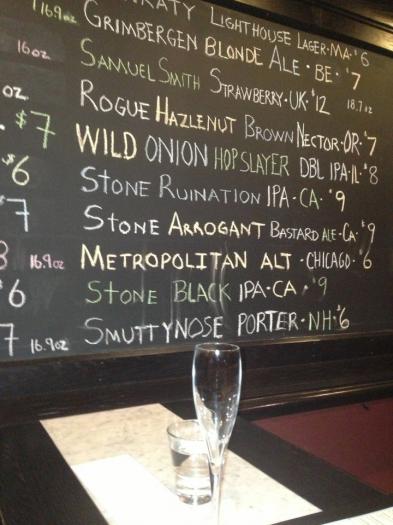 16.9oz KATY LIGHTHOUSE LAGER·MA·$6
GRIMBERGEN BLONDE ALE·BE·$7
16oz SAMUEL SMITH STRAWBERRY·UK·$12 18.7oz
OZ ROGUE HAZLENUT BROWN NECTOR·OR·$7
$7 WILD ONION HOPSLAYER DBL IPA·IL·$8
$6 STONE RUINATION IPA·CA·$9
$7 STONE ARROGANT BASTARD ALE·CA·$9
8 16.9oz METROPOLITAN ALT·CHICAGO·$6
6 STONE BLACK IPA·CA·$9
7 16.9oz SMUTTYNOSE PORTER·NH·$6